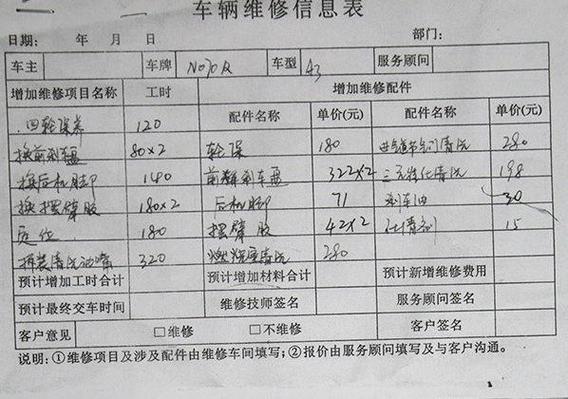 车辆维修信息表
日期: 年 月 日 部门:
车主 车牌 N070R 车型 A3 服务顾问
增加维修项目名称 工时 增加维修配件
配件名称 单价(元) 配件名称 单价(元)
四轮保养 120
换前刹车盘 80×2 轮保 180 进气道节气门清洗 280
换后机脚 140 前刹车盘 322×2 三元催化清洗 198
换摆臂胶 180×2 后机脚 71 刹车油 30
定位 180 摆臂胶 42×2 清洗剂 15
拆装清洗油嘴 320 燃烧室清洗 280
预计增加工时合计 预计增加材料合计 预计新增维修费用
预计最终交车时间 维修技师签名 服务顾问签名
客户意见 □维修 □不维修 客户签名
说明:①维修项目及涉及配件由维修车间填写;②报价由服务顾问填写及与客户沟通。